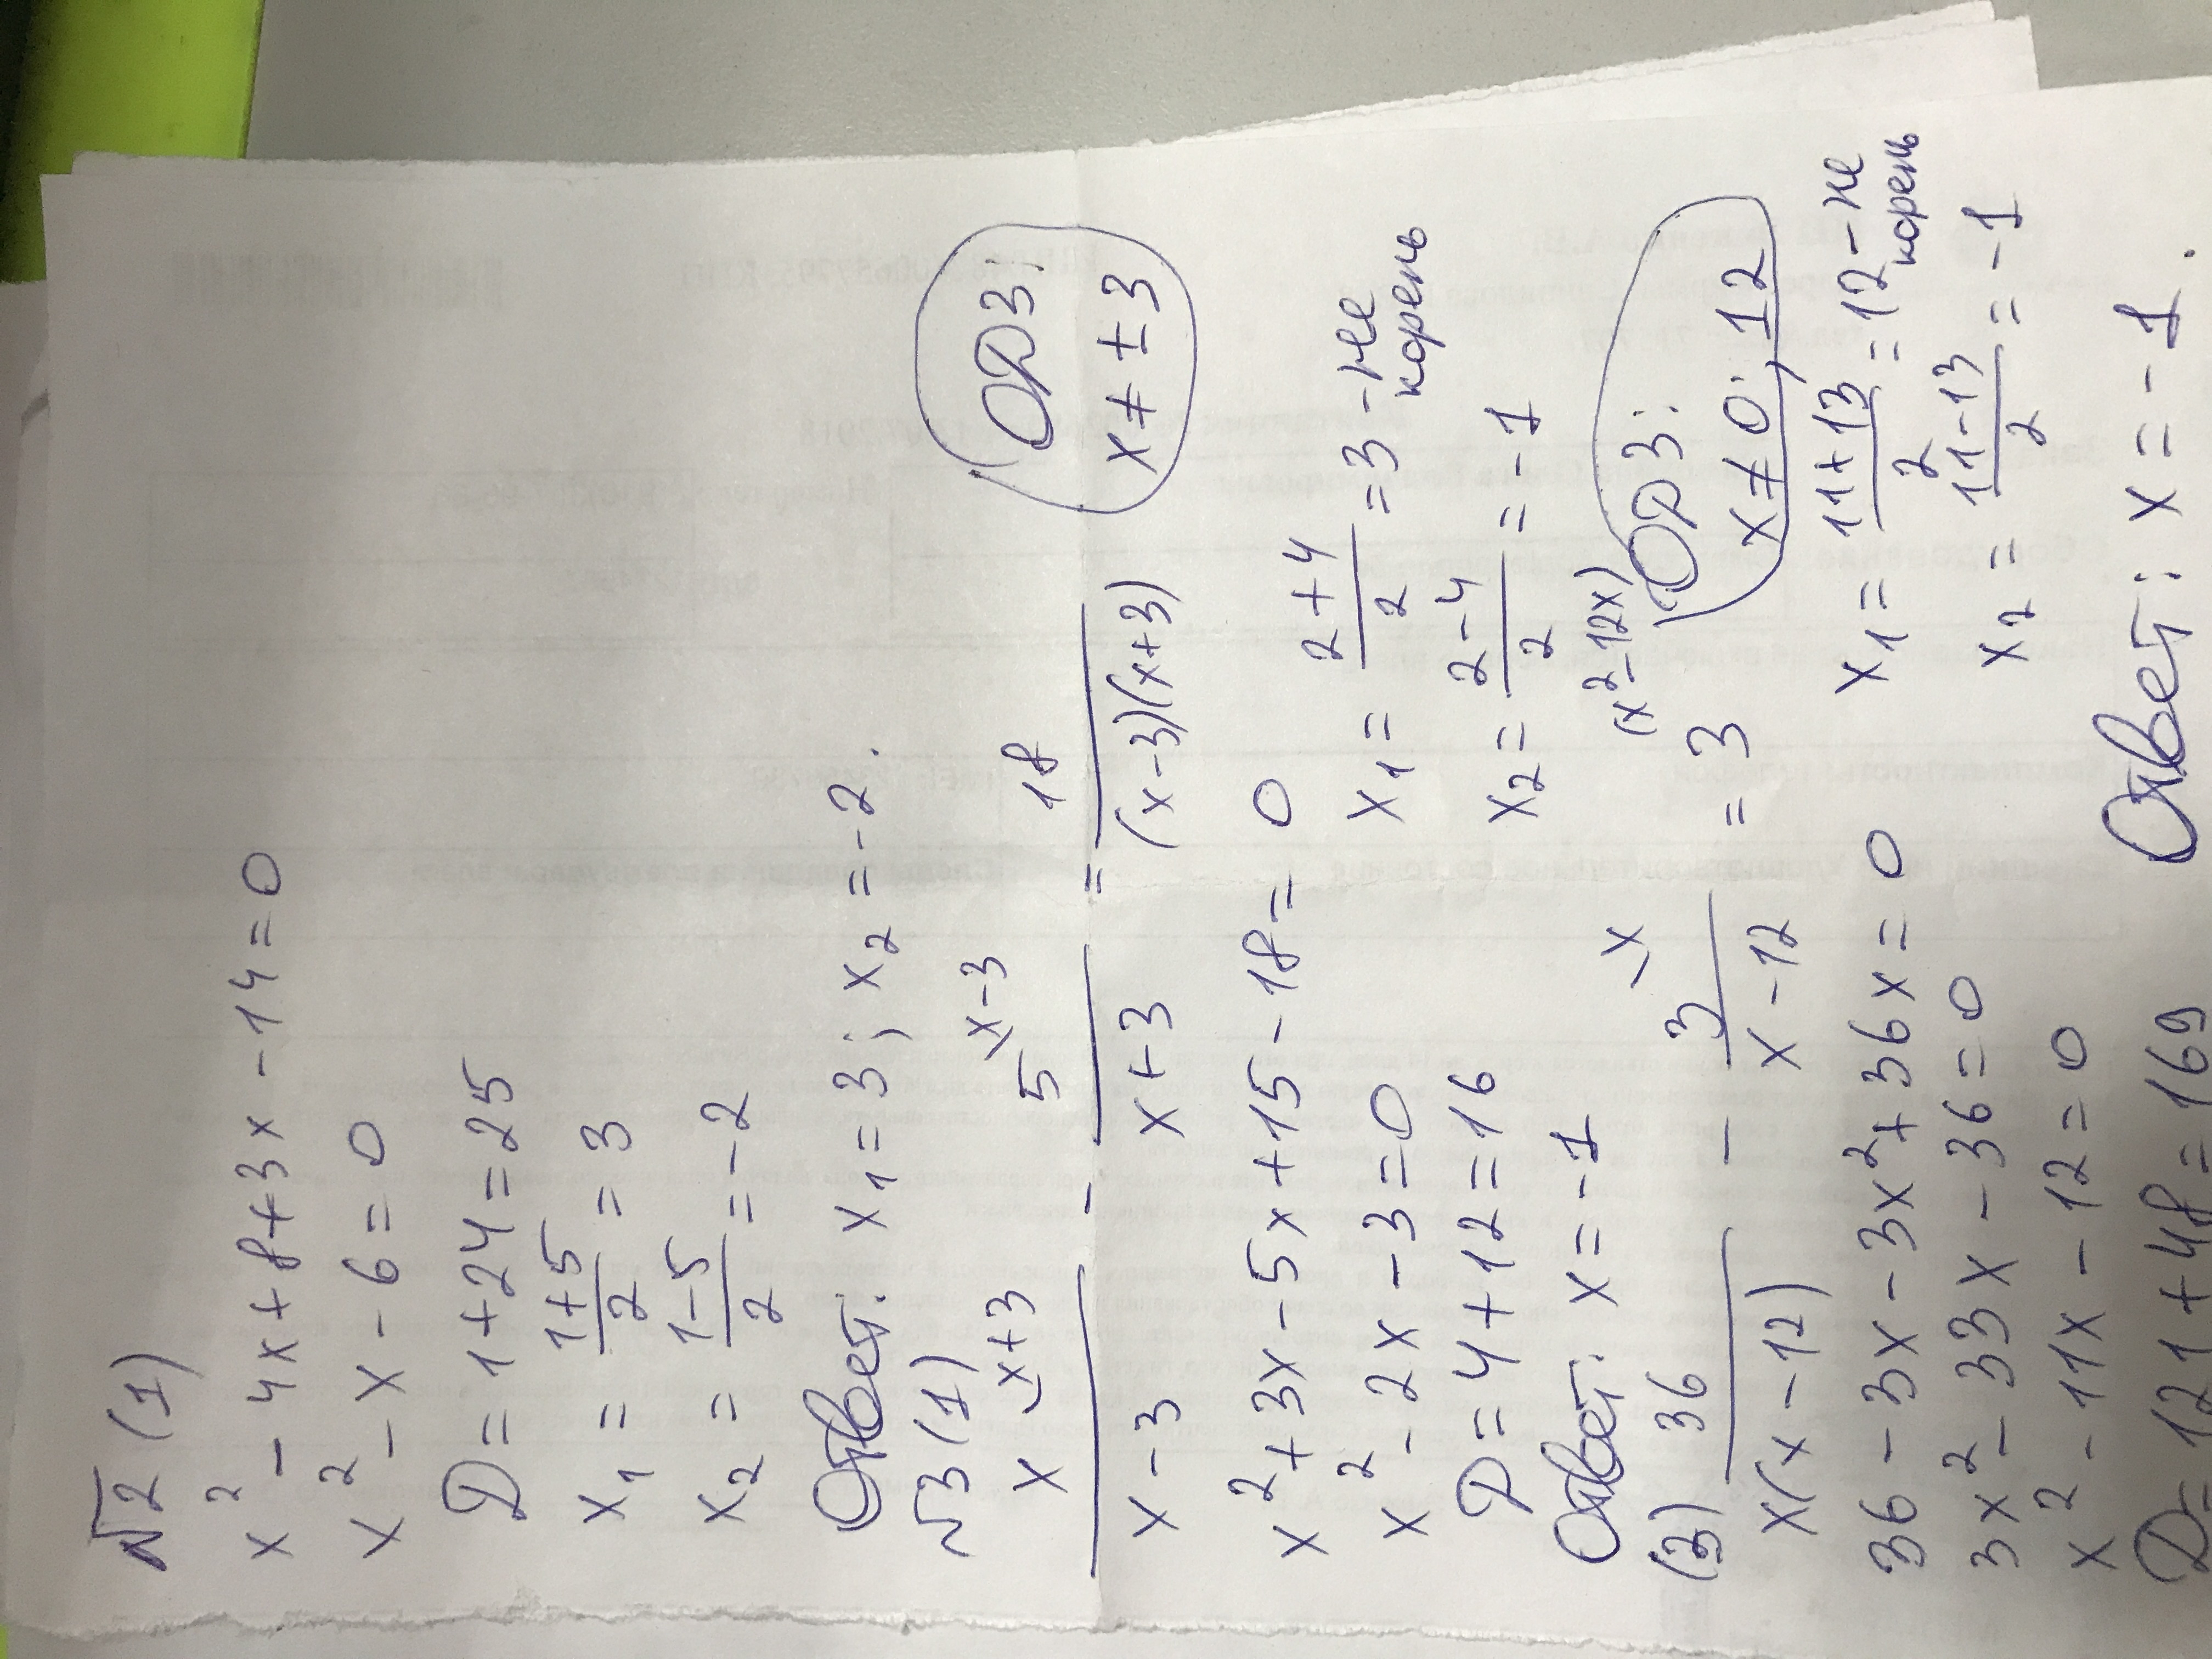 √2 (1)
x² - 4x + 8 + 3x - 14 = 0
x² - x - 6 = 0
D = 1 + 24 = 25
x₁ = (1+5)/2 = 3
x₂ = (1-5)/2 = -2
Ответ: x₁ = 3; x₂ = -2.
√3 (1)
x^(x+3)/(x-3) - 5^(x-3)/(x+3) = 18/((x-3)(x+3))
ОДЗ:
x ≠ ±3
x² + 3x - 5x + 15 - 18 = 0
x² - 2x - 3 = 0
D = 4 + 12 = 16
x₁ = (2+4)/2 = 3 - не корень
x₂ = (2-4)/2 = -1
Ответ: x = -1
(3) 36/(x(x-12)) - 3^(x)/(x-12) = 3^(x²-12x)
ОДЗ:
x ≠ 0; 12
36 - 3x - 3x² + 36x = 0
3x² - 33x - 36 = 0
x² - 11x - 12 = 0
D = 121 + 48 = 169
x₁ = (11+13)/2 = 12 - не корень
x₂ = (11-13)/2 = -1
Ответ: x = -1.